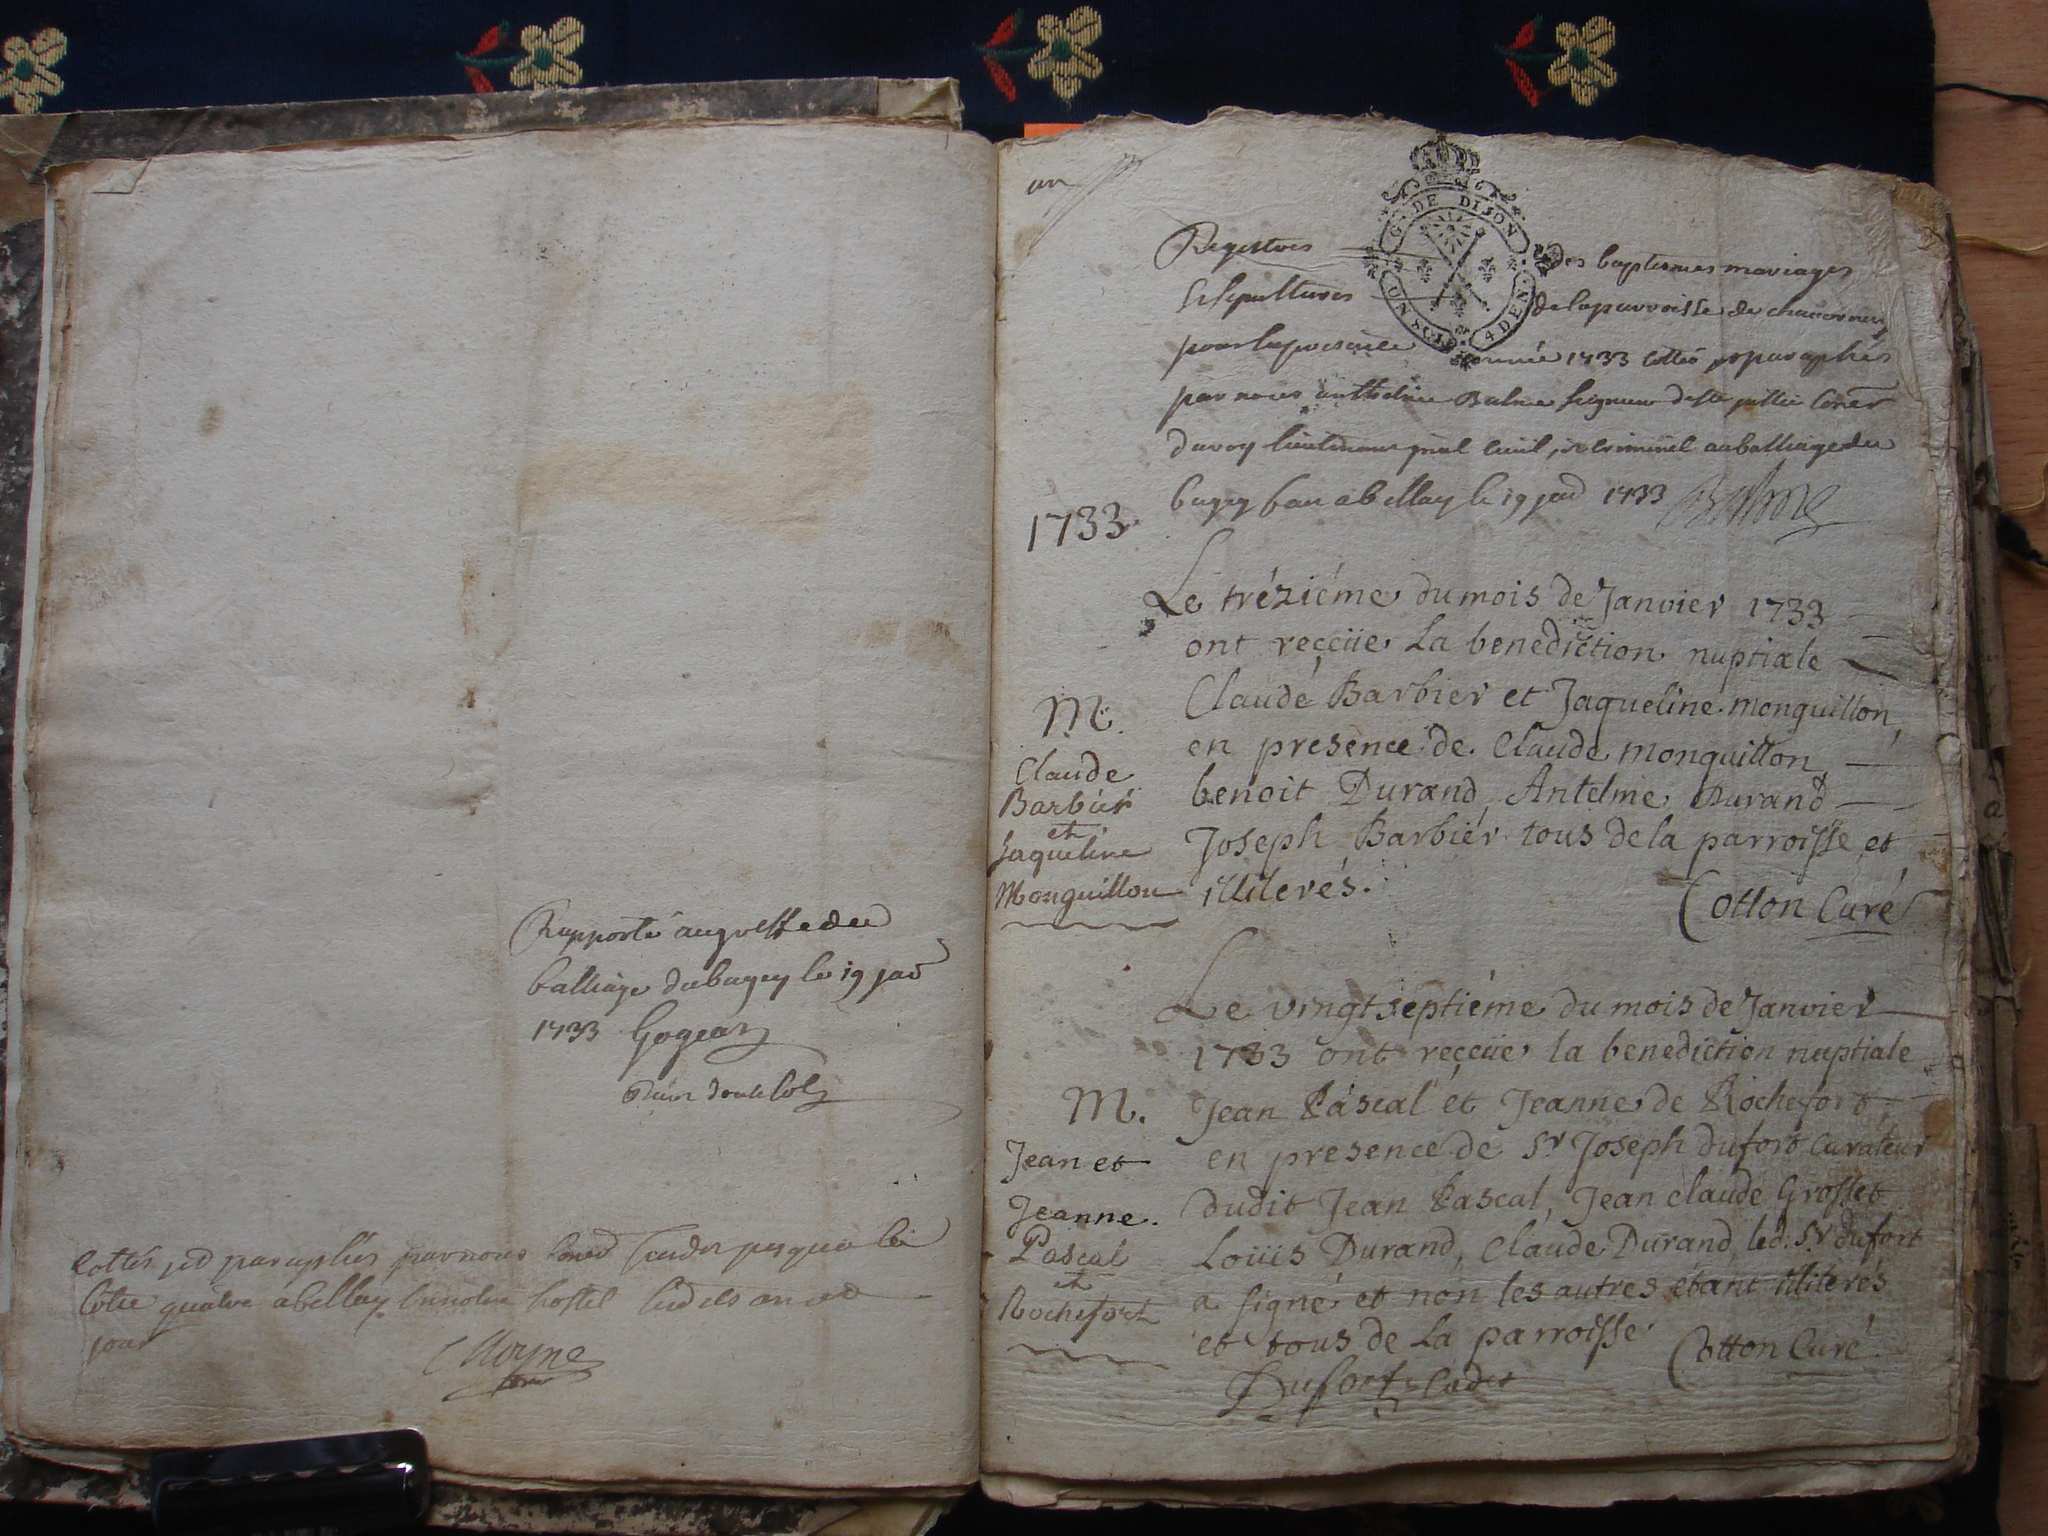 Rapporté au greffe du
balliage du bugey le 19 jad
1733 Gogeat
cottés et paraphés par nous
cotte quatre a bellay hostel
jour
un
G. DE DIJON
UN SOL 4 DEN.
Registres des baptemes mariages
sepultures de la parroisse de
pour la presente année 1733 cottés et paraphés
par nous anthelme Balme seigneur de
du roy lieutenant gnal civil, et criminel au balliage du
bugey a bellay le 19 1733 Balme
1733
Le tréziéme du mois de Janvier 1733
ont reçeüe La benediction nuptiale
Claude Barbier et Jaqueline monquillon,
en presence de Claude monquillon
benoit Durand, Antelme Durand
Joseph Barbier tous de la parroisse et
illiterés.
Cotton Curé
M.
Claude
Barbier
et
Jaqueline
Monquillon
Le vingt septiéme du mois de Janvier
1733 ont reçeüe la benediction nuptiale
Jean Pascal et Jeanne de Rochefort,
en presence de Sr Joseph dufort curateur
dudit Jean Pascal, Jean claude Grosset
Loüis Durand, Claude Durand, led. Sr dufort
a signé et non les autres étant illiterés
et tous de La parroisse.
Cotton Curé
Dufort Cadet
M.
Jean et
Jeanne.
Pascal
et
Rochefort